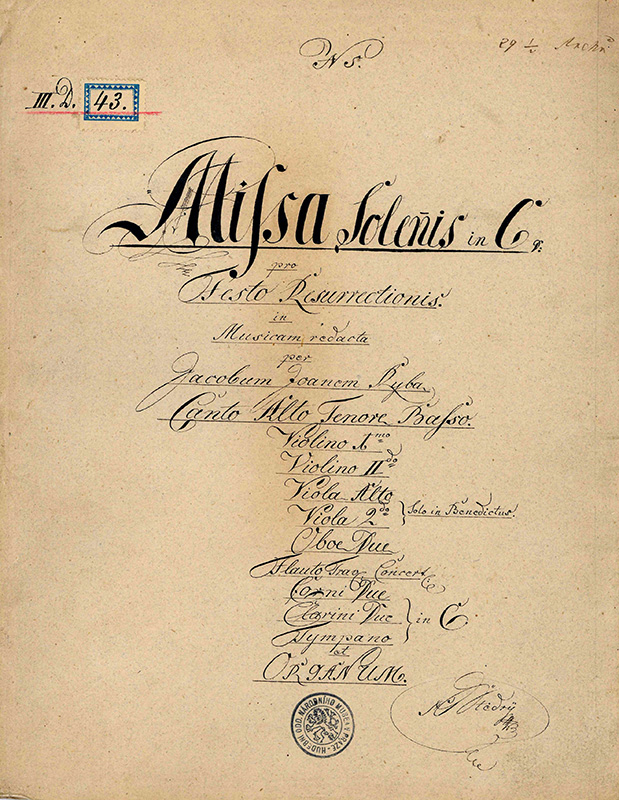 N 5.
29 1/2
III. D. 43.
Missa Solen̄is in C
pro
Festo Resurrectionis.
in
Musicam redacta
per
Jacobum Joanem Ryba
Canto Alto Tenore Basso.
Violino 1mo
Violino IIdo
Viola Alto
Viola 2do } Solo in Benedictus.
Oboe Due
Flauto Trav. Concert
Corni Due
Clarini Due } in C
Tympano
et
ORGANUM.
HUDEBNÍ ODD. NÁRODNÍHO MUSEA V PRAZE